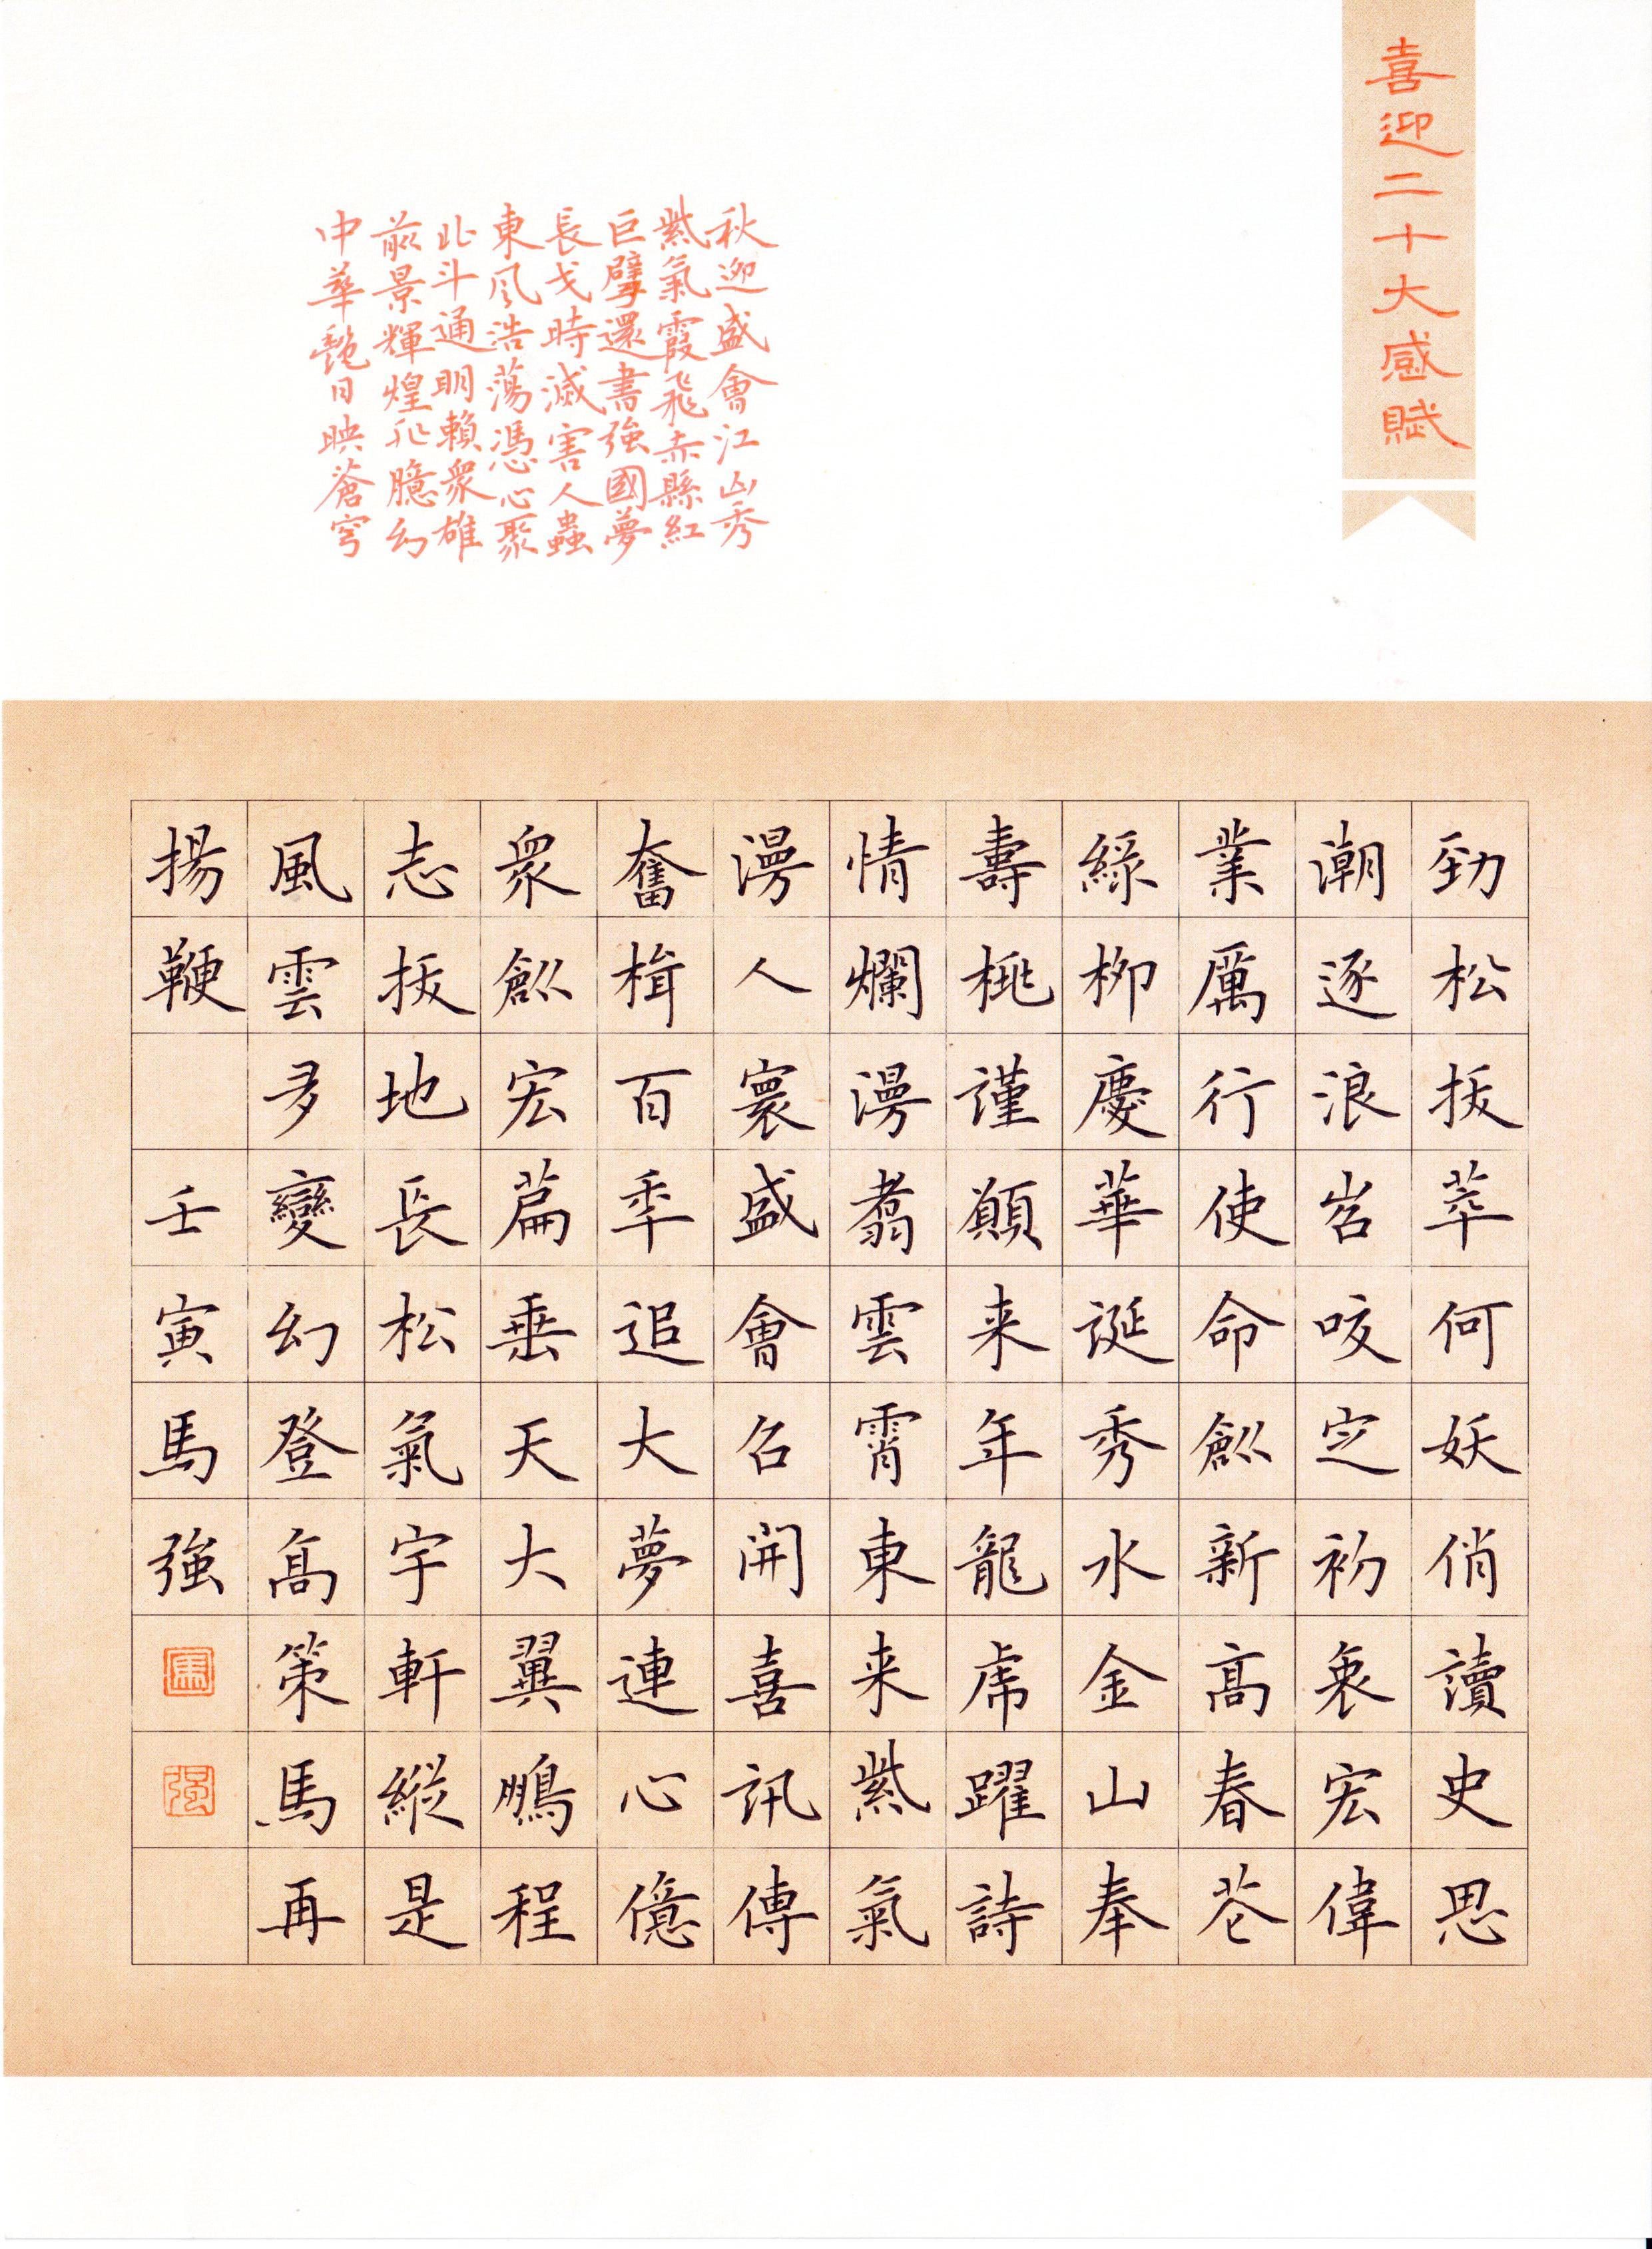 喜迎二十大感賦
秋迎盛會江山秀
紫氣霞飛赤縣紅
巨擘還書強國夢
長戈時滅害人蟲
東風浩蕩憑心聚
北斗通明賴衆雄
前景輝煌非臆幻
中華艷日映蒼穹
勁松拔萃何妖俏讀史思
潮逐浪岩咬定初衷宏偉
業厲行使命創新高春花
綠柳慶華誕秀水金山奉
壽桃謹願来年龍虎躍詩
情爛漫翥雲霄東来紫氣
漫人寰盛會召開喜訊傳
奮楫百年追大夢連心億
衆創宏篇垂天大翼鵬程
志拔地長松氣宇軒縱是
風雲多變幻登高策馬再
揚鞭 壬寅馬強
馬
強